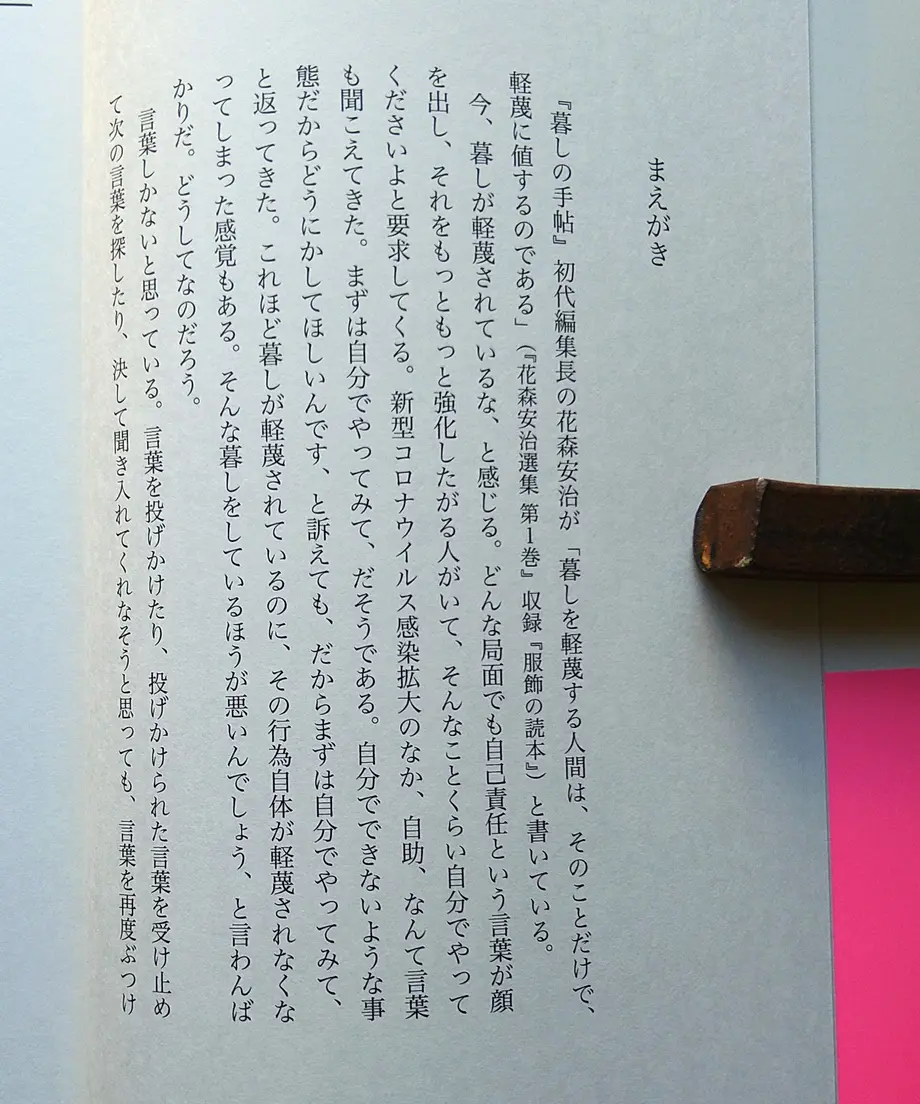 まえがき
『暮しの手帖』初代編集長の花森安治が「暮しを軽蔑する人間は、そのことだけで、
軽蔑に値するのである」（『花森安治選集 第1巻』収録『服飾の読本』）と書いている。
今、暮しが軽蔑されているな、と感じる。どんな局面でも自己責任という言葉が顔
を出し、それをもっともっと強化したがる人がいて、そんなことくらい自分でやって
くださいよと要求してくる。新型コロナウイルス感染拡大のなか、自助、なんて言葉
も聞こえてきた。まずは自分でやってみて、だそうである。自分でできないような事
態だからどうにかしてほしいんです、と訴えても、だからまずは自分でやってみて、
と返ってきた。これほど暮しが軽蔑されているのに、その行為自体が軽蔑されなくな
ってしまった感覚もある。そんな暮しをしているほうが悪いんでしょう、と言わんば
かりだ。どうしてなのだろう。
言葉しかないと思っている。言葉を投げかけたり、投げかけられた言葉を受け止め
て次の言葉を探したり、決して聞き入れてくれなそうと思っても、言葉を再度ぶつけ